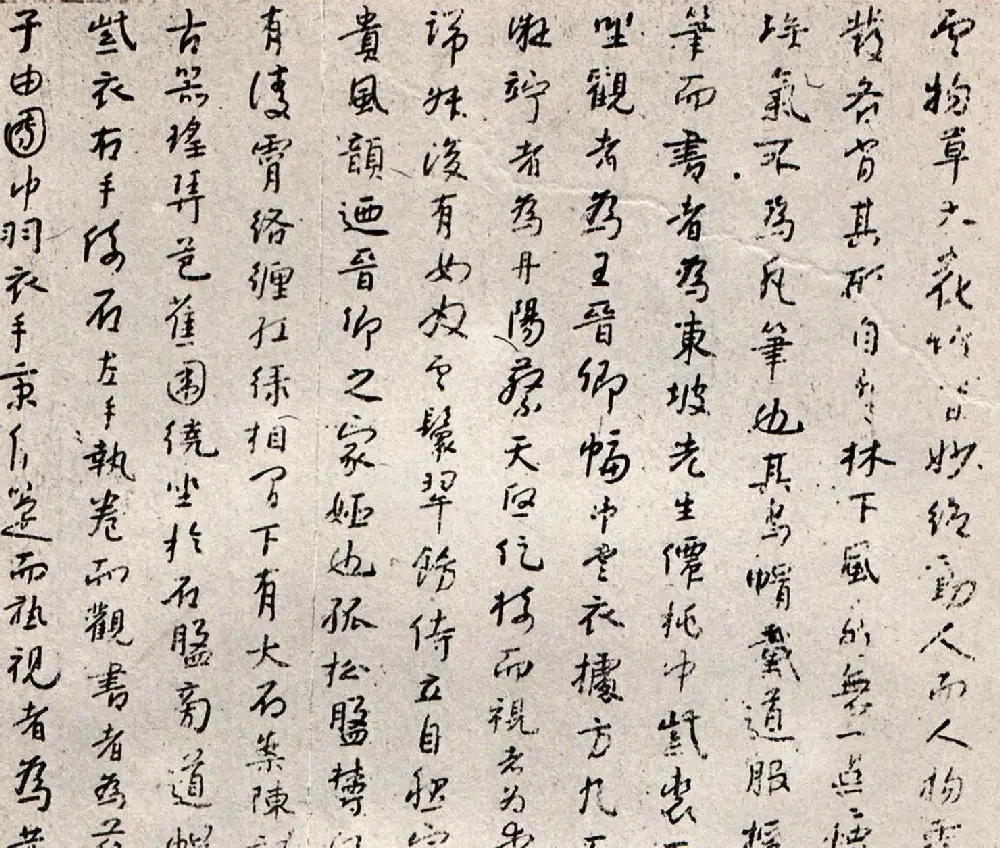 雲物草木花竹皆妙絕動人而人物秀
發各肖其形自有林下風味無一點塵
埃氣不為凡筆也其烏帽黃道服捉
筆而書者為東坡先生僊桃巾紫裘而
坐觀者為王晉卿幅巾青衣據方几而
凝竚者為丹陽蔡天啓捉椅而視者為李
端叔後有女奴雲鬟翠飾侍立自然富
貴風韻迺晉卿之家姬也孤松盤鬱
有淩霄絡纏紅綠相間下有大石案陳設
古器瑤琴芭蕉圍繞坐於石盤旁道帽
紫衣右手倚石左手執卷而觀書者為蘇
子由團巾羽衣手秉蕉箑而熟視者為黃